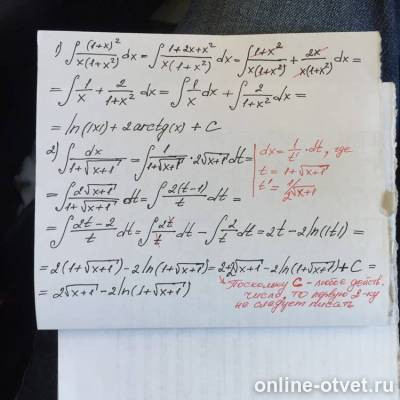 1) ∫ (1+x)²/x(1+x²) dx = ∫ 1+2x+x²/x(1+x²) dx = ∫ 1+x²/x(1+x²) + 2x/x(1+x²) dx =
= ∫ 1/x + 2/1+x² dx = ∫ 1/x dx + ∫ 2/1+x² dx =
= ln(|x|) + 2arctg(x) + C
2) ∫ dx/1+√x+1 = ∫ 1/1+√x+1 · 2√x+1 dt =
dx = 1/t' · dt, где
t = 1+√x+1
t' = 1/2√x+1
= ∫ 2√x+1/1+√x+1 dt = ∫ 2(t-1)/t dt =
= ∫ 2t-2/t dt = ∫ 2t/t dt - ∫ 2/t dt = 2t - 2ln(|t|) =
= 2(1+√x+1) - 2ln(1+√x+1) = 2+2√x+1 - 2ln(1+√x+1) + C =
= 2√x+1 - 2ln(1+√x+1)
Поскольку C - любое действ.
число, то первую 2-ку
не следует писать
online-otvet.ru